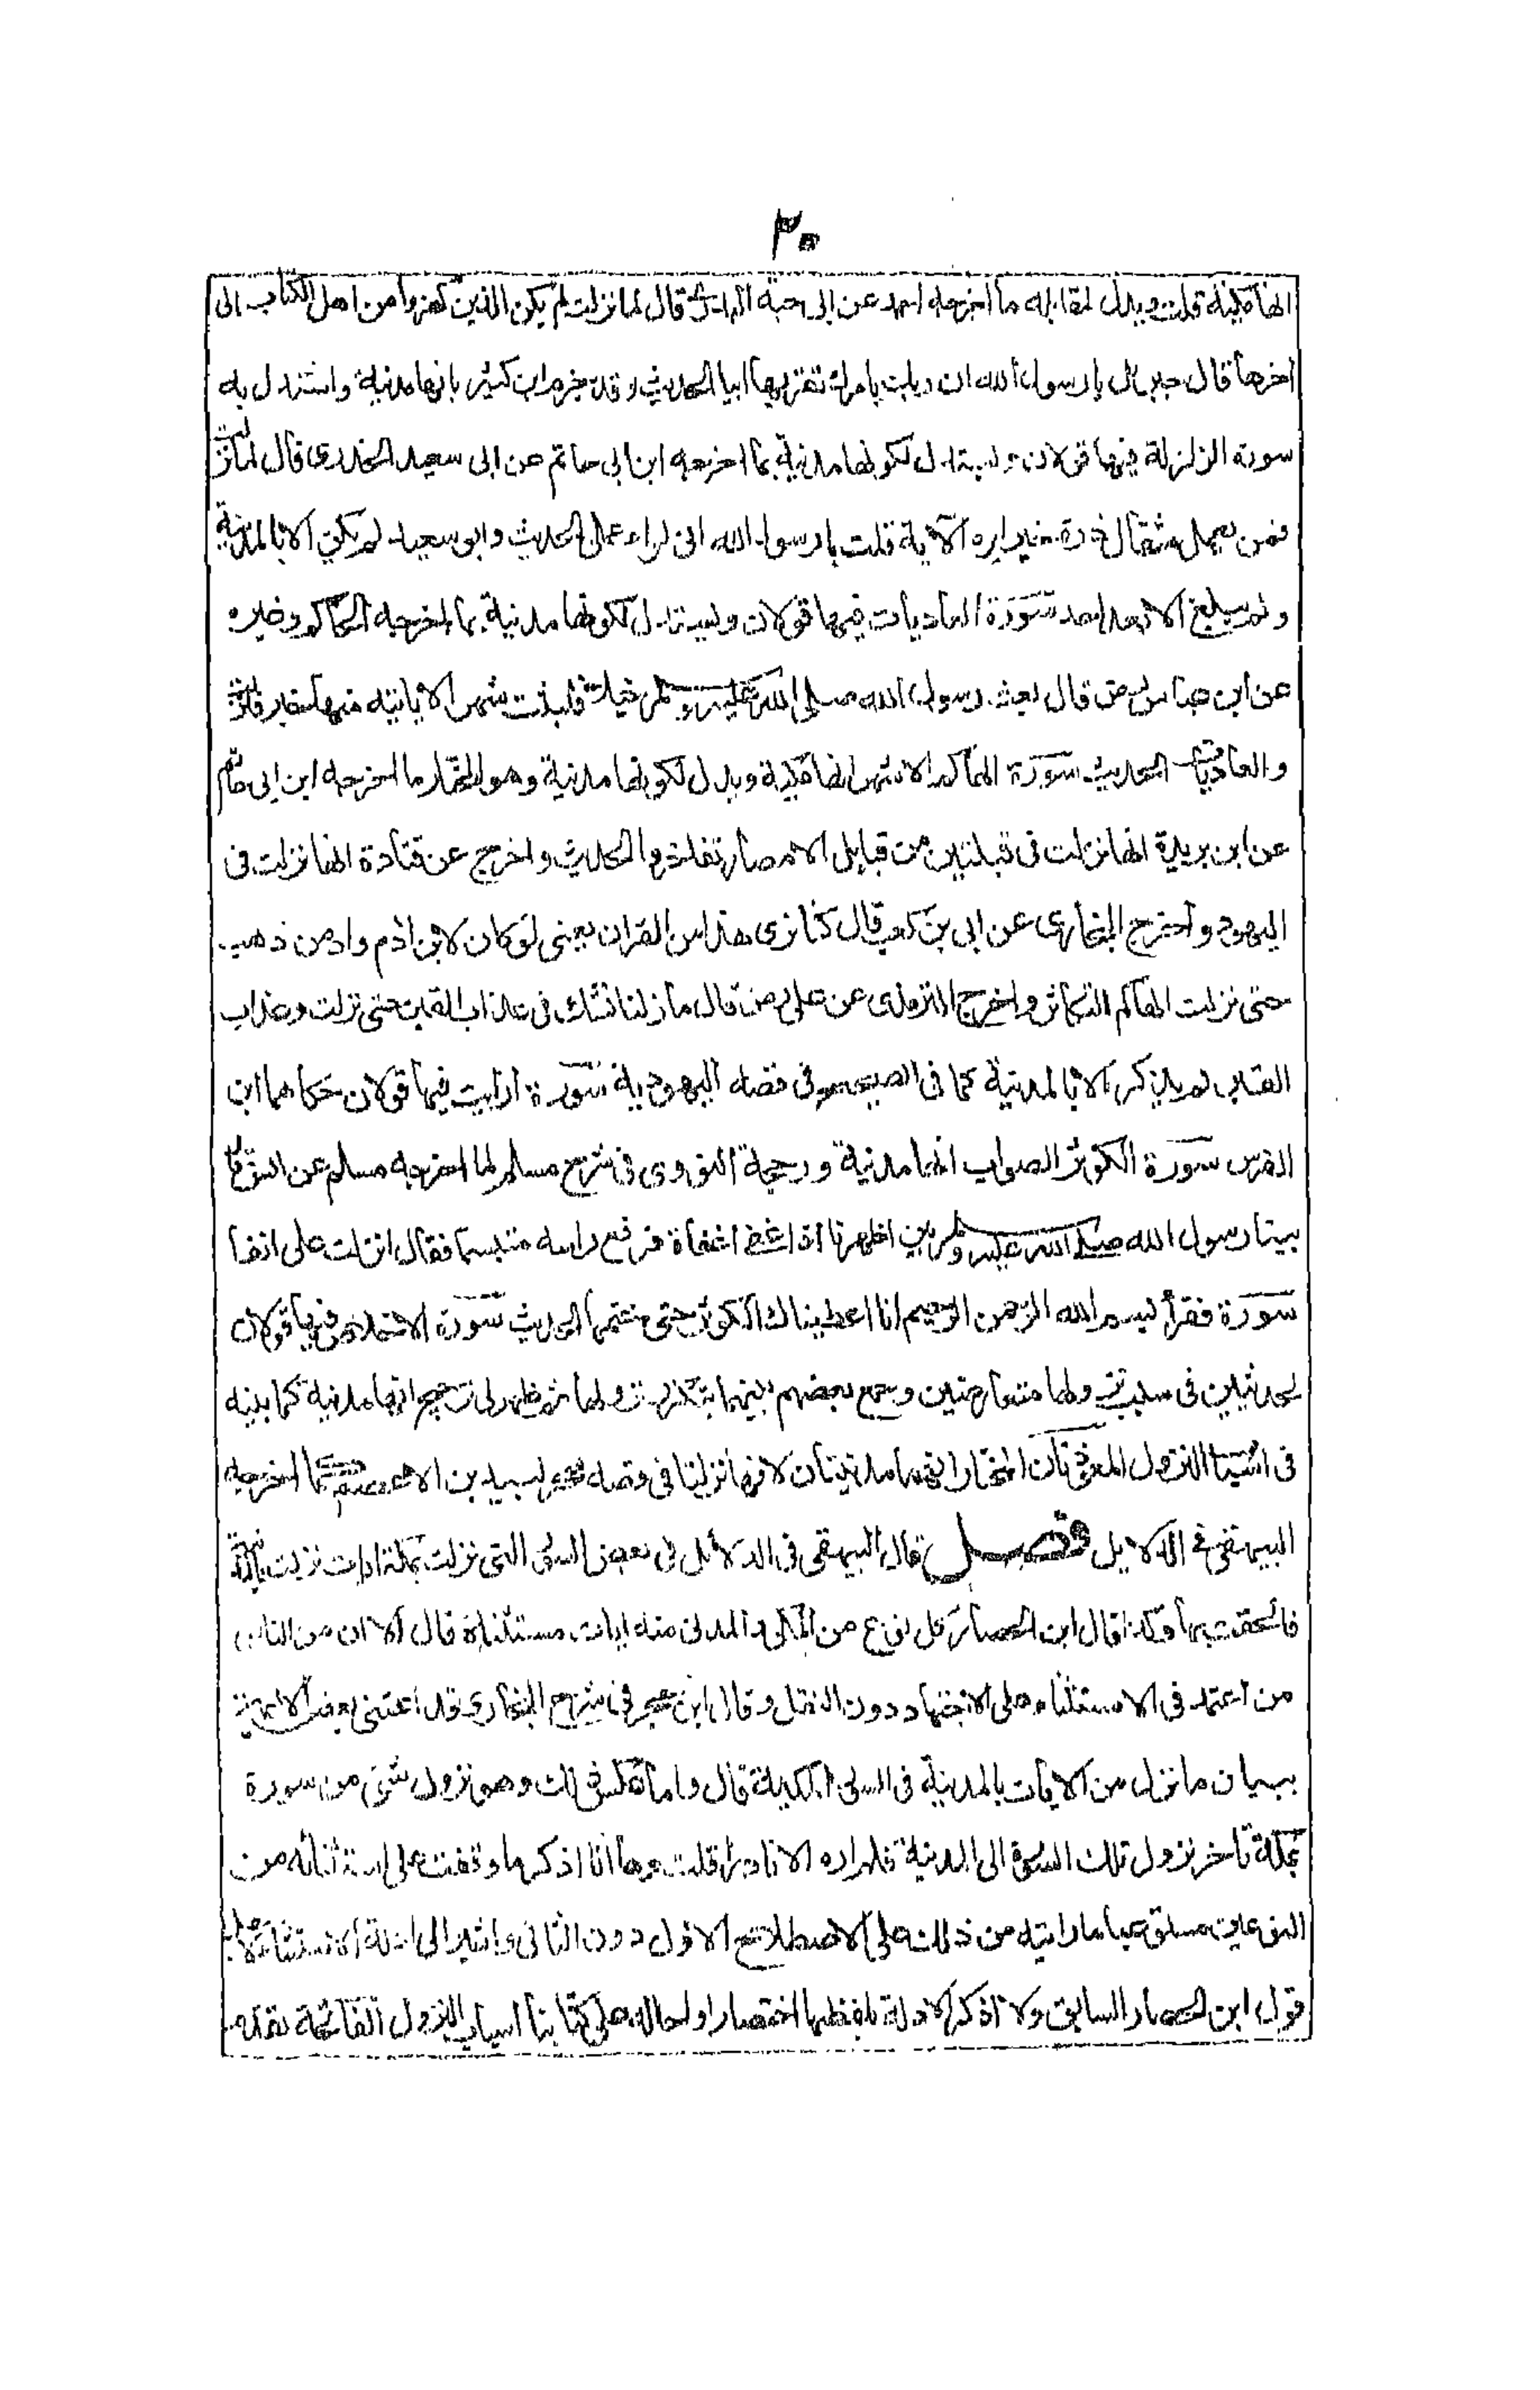 ٣٥
انها مكية قلت ويدل لمقابله ما اخرجه احمد عن ابى حبة البدرى قال لما نزلت لم يكن الذين كفروا من اهل الكتاب الى
اخرها قال جبريل يا رسول الله ان ربك يامرك ان تقرئها ابيا الحديث وقد جزم ابن كثير بانها مدنية واستدل به
سورة الزلزلة فيها قولان ويستدل لكونها مدنية بما اخرجه ابن ابى حاتم عن ابى سعيد الخدرى قال لما نزلت
فمن يعمل مثقال ذرة خيرا يره الآية قلت يا رسول الله انى لراء عملى الحديث وابو سعيد لم يكن الا بالمدينة
ولم يبلغ الا بعد احد سورة العاديات فيها قولان ويستدل لكونها مدنية بما اخرجه الحاكم وغيره
عن ابن عباس رض قال بعث رسول الله صلى الله عليه وسلم خيلا فلبثت شهرا لا ياتيه منها خبر فنزلت
والعاديات الحديث سورة الهاكم الاشهر انها مكية ويدل لكونها مدنية وهو المختار ما اخرجه ابن ابى حاتم
عن ابن بريدة انها نزلت فى قبيلتين من قبايل الانصار تفاخروا الحديث واخرج عن قتادة انها نزلت فى
اليهود واخرج البخارى عن ابى بن كعب قال كنا نرى هذا من القران يعنى لو كان لابن ادم واد من ذهب
حتى نزلت الهاكم التكاثر واخرج الترمذى عن على رض قال ما زلنا نشك فى عذاب القبر حتى نزلت وعذاب
القبر لم يذكر الا بالمدينة كما فى الصحيح فى قصة اليهودية سورة ارايت فيها قولان حكاهما ابن
الفرس سورة الكوثر الصواب انها مدنية ورجحه النووى فى شرح مسلم لما اخرجه مسلم عن انس قال
بينا رسول الله صلى الله عليه وسلم بين اظهرنا اذ اغفى اغفاة فرفع راسه متبسما فقال انزلت على انفا
سورة فقرأ بسم الله الرحمن الرحيم انا اعطيناك الكوثر حتى ختمها الحديث سورة الاخلاص فيها قولان
لحديثين فى سبب نزولها متعارضين وجمع بعضهم بينهما بتكرر نزولها ثم ظهر لى ترجيح انها مدنية كما بينته
فى اسباب النزول المعوذتان المختار انهما مدنيتان لانهما نزلتا فى قصة سحر لبيد بن الاعصم كما اخرجه
البيهقى فى الدلايل فصل قال البيهقى فى الدلائل فى بعض السور التى نزلت بمكة ايات نزلت بالمدينة
فالحقت بها وكذا قال ابن الحصار كل نوع من المكى والمدنى منه ايات مستثناة قال الا ان من الناس
من اعتمد فى الاستثناء على الاجتهاد دون النقل وقال ابن حجر فى شرح البخارى قد اعتنى بعض الائمة
ببيان ما نزل من الايات بالمدينة فى السور المكية قال واما عكس ذلك وهو نزول شئ من سورة
بمكة تاخر نزول تلك السورة الى المدينة فلم اره الا نادرا قلت وها انا اذكر ما وقفت على استثنائه من
النوعين مستوعبا ما رايته من ذلك على الاصطلاح الاول دون الثانى واشير الى ادلة الاستثناء لاجل
قول ابن الحصار السابق ولا اذكر الادلة بلفظها اختصارا واحالة على كتابنا اسباب النزول الفاتحة تقدم